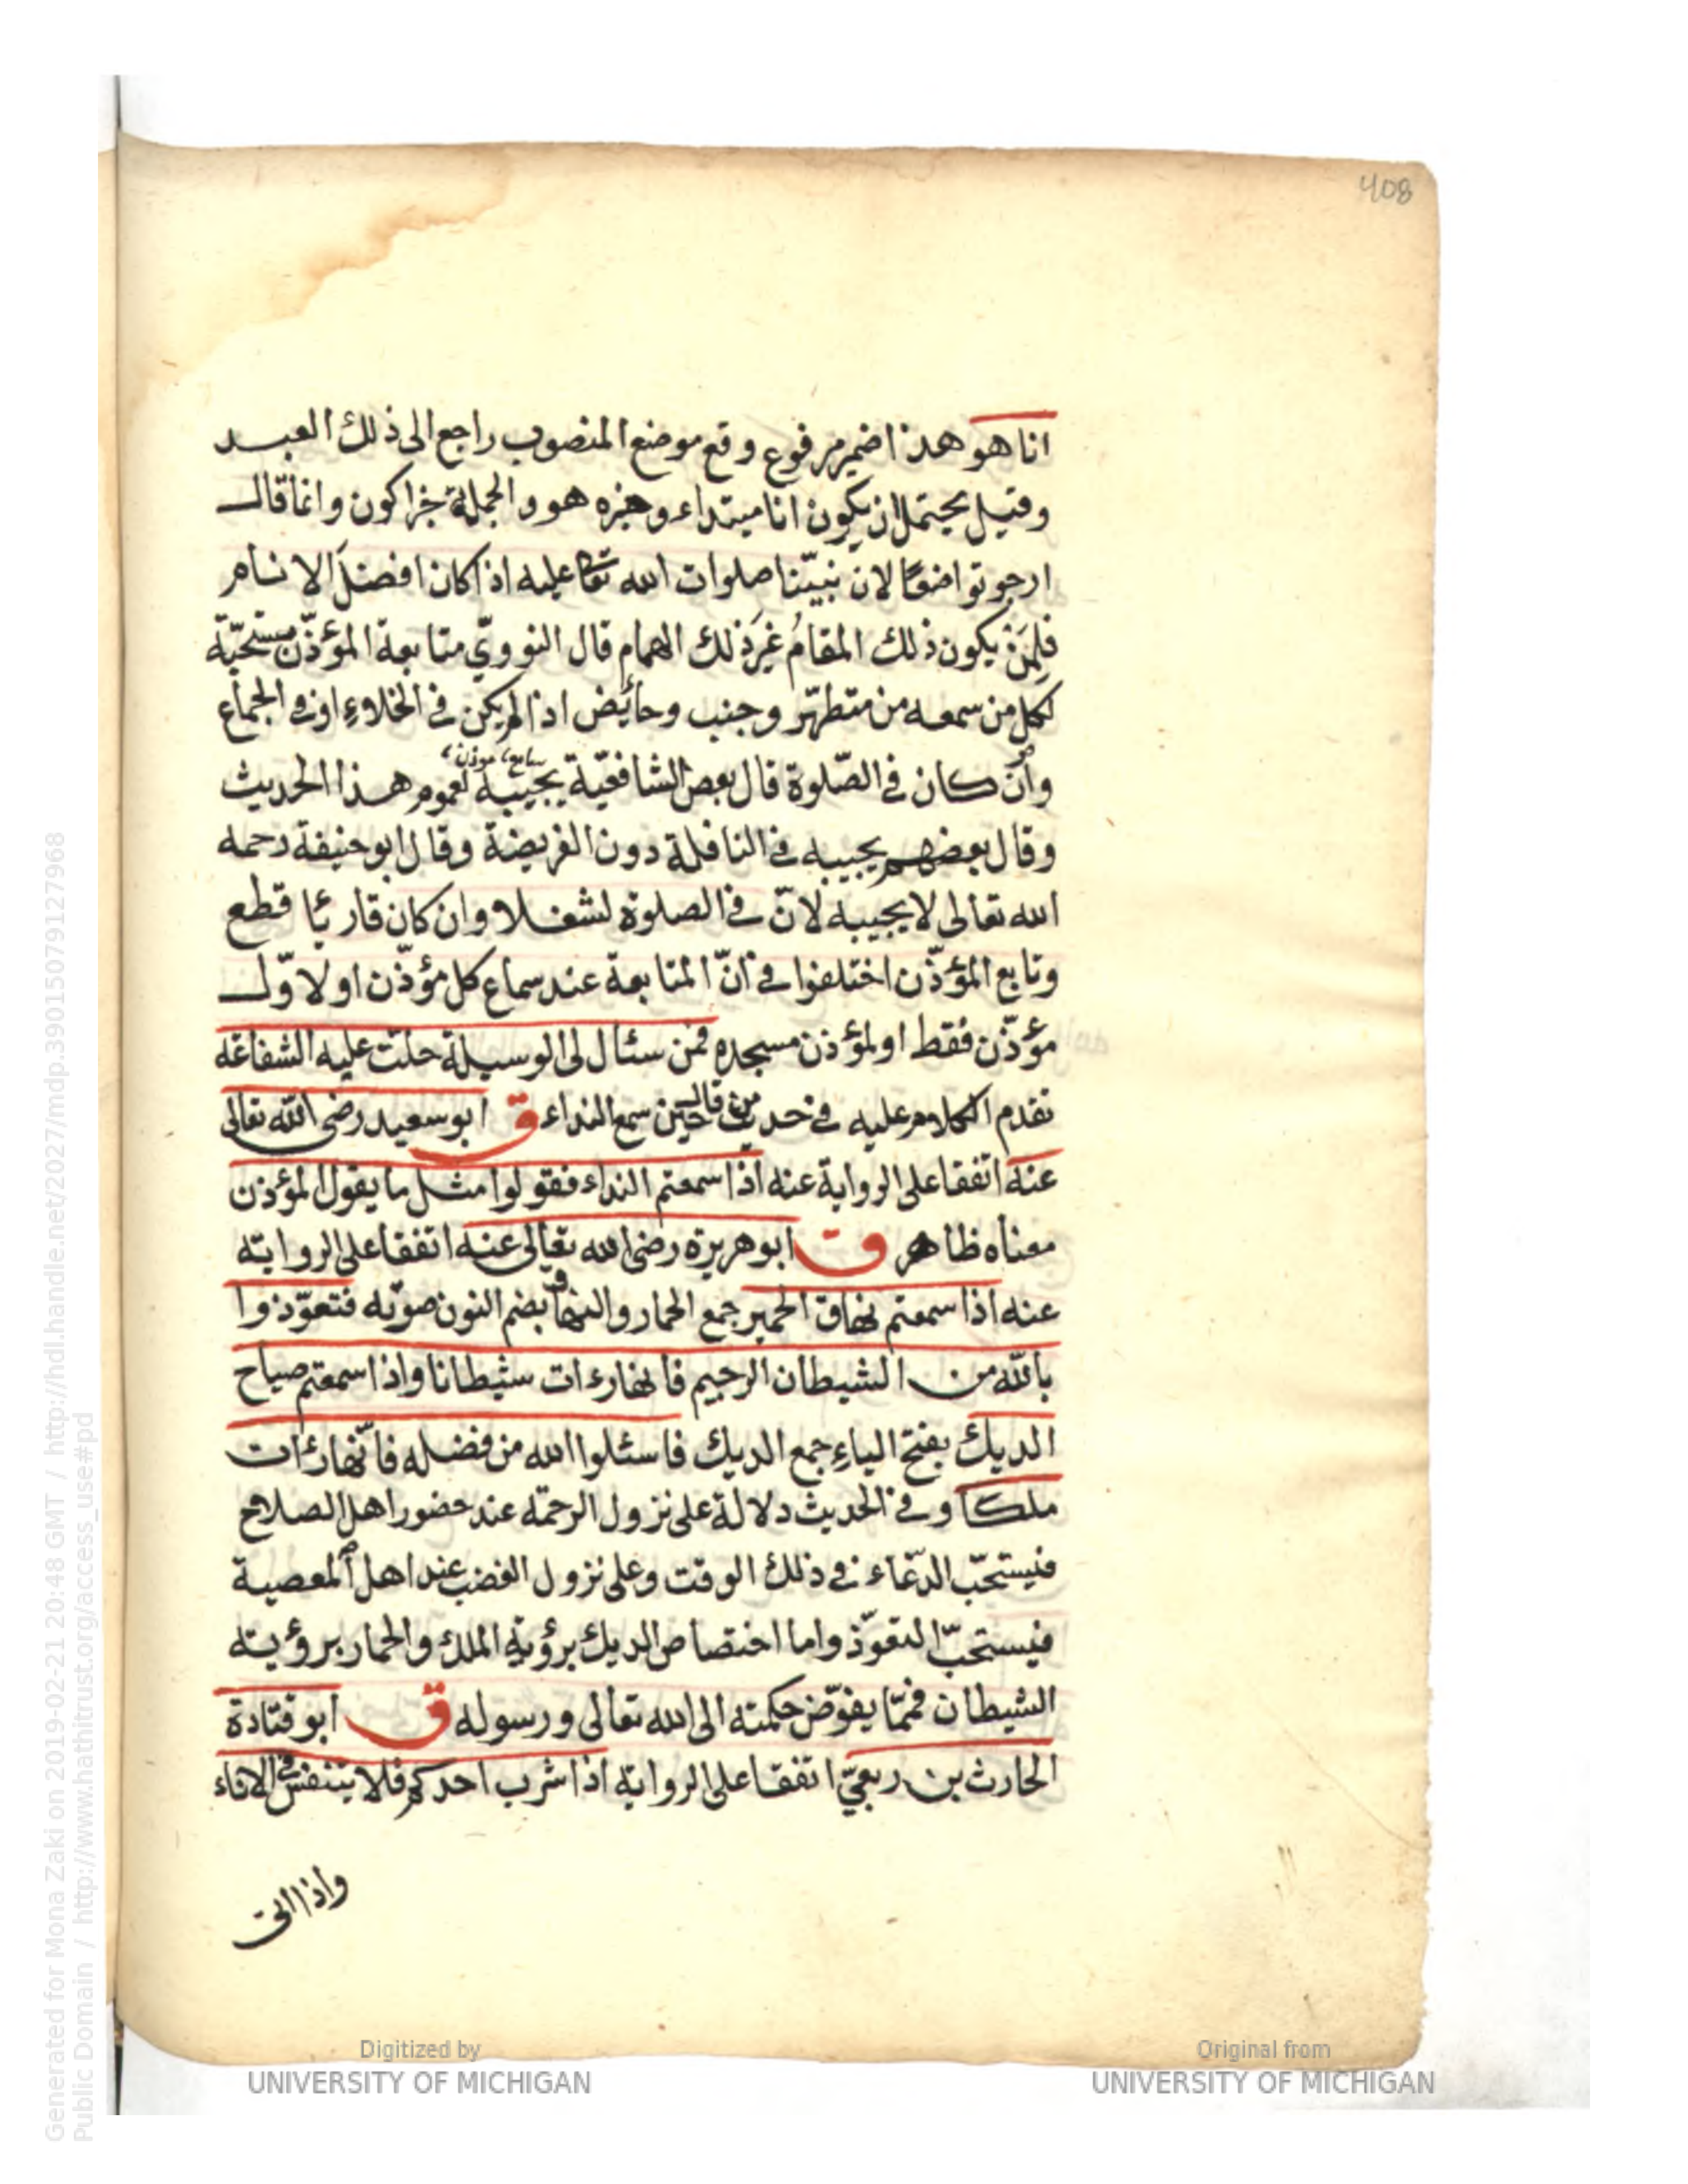 408
انا هو هذا ضمير مرفوع وقع موضع المنصوب راجع الى ذلك العبد
وقيل يحتمل ان يكون انا مبتداء وخبره هو والجملة خبر اكون وانما قال
ارجو تواضعًا لان نبيّنا صلوات الله تعا عليه اذا كان افضلَ الانام
فلِمَنْ يكون ذلك المقامُ غيرَ ذلك الهمام قال النوويّ متابعة المؤذّن مستحبّة
لكل من سمعه من متطهّر وجنب وحائض اذا لم يكن في الخلاء او في الجماع
وانْ كان في الصّلوة قال بعض الشافعيّة يجيبه لعموم هذا الحديث
سامع مؤذن
وقال بعضهم يجيبه في النافلة دون الفريضة وقال ابو حنيفة رحمه
الله تعالى لا يجيبه لانّ في الصلوة لشغلا وان كان قارئا قطع
وتابع المؤذّن اختلفوا في انّ المتابعة عند سماع كل مؤذّن او لاوّل
مؤذّن فقط او لمؤذن مسجده فمن سئال لى الوسيلة حلّت عليه الشفاعة
تقدم الكلام عليه في حديث من قال حين سمع النداء ق ابو سعيد رضى الله تعالى
عنه اتفقا على الرواية عنه اذا سمعتم النداء فقولوا مثل ما يقول المؤذن
معناه ظاهر ق ابو هريرة رضى الله تعالى عنه اتفقا على الرواية
عنه اذا سمعتم نهاق الحمير جمع الحمار والنهاق بضم النون صوته فتعوّذوا
بالله من الشيطان الرجيم فانها رءات شيطانا واذا سمعتم صياح
الديك بفتح الياء جمع الديك فاسئلوا الله من فضله فانّها رءات
ملكا وفي الحديث دلالة على نزول الرحمة عند حضور اهل الصلاح
فيستحبّ الدّعاء في ذلك الوقت وعلى نزول الغضب عند اهل المعصية
فيستحبّ التعوّذ واما اختصاص الديك برؤية الملك والحمار برؤية
الشيطان فممّا يفوّض حكمته الى الله تعالى ورسوله ق ابو قتادة
الحارث بن ربعيّ اتفقا على الرواية اذا شرب احدكم فلا يتنفس في الاناء
واذا اتى
Generated for Mona Zaki on 2019-02-21 20:48 GMT / http://hdl.handle.net/2027/mdp.39015079127968
Public Domain / http://www.hathitrust.org/access_use#pd
Digitized by
UNIVERSITY OF MICHIGAN
Original from
UNIVERSITY OF MICHIGAN